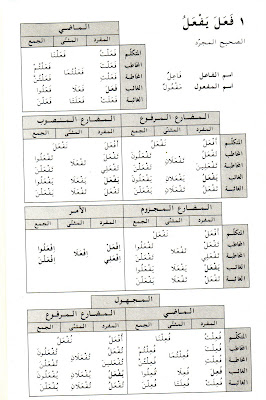 ١ فَعَلَ يَفْعَلُ
الصحيح المجرّد
اسم الفاعل فَاعِلٌ
اسم المفعول مَفْعُولٌ
الماضي
المفرد المثنّى الجمع
المتكلّم فَعَلْتُ فَعَلْنَا
المخاطب فَعَلْتَ فَعَلْتُمَا فَعَلْتُمْ
المخاطبة فَعَلْتِ فَعَلْتُنَّ
الغائب فَعَلَ فَعَلَا فَعَلُوا
الغائبة فَعَلَتْ فَعَلَتَا فَعَلْنَ
المضارع المرفوع المضارع المنصوب
المفرد المثنّى الجمع المفرد المثنّى الجمع
المتكلّم أَفْعَلُ نَفْعَلُ أَفْعَلَ نَفْعَلَ
المخاطب تَفْعَلُ تَفْعَلَانِ تَفْعَلُونَ تَفْعَلَ تَفْعَلَا تَفْعَلُوا
المخاطبة تَفْعَلِينَ تَفْعَلْنَ تَفْعَلِي تَفْعَلْنَ
الغائب يَفْعَلُ يَفْعَلَانِ يَفْعَلُونَ يَفْعَلَ يَفْعَلَا يَفْعَلُوا
الغائبة تَفْعَلُ تَفْعَلَانِ يَفْعَلْنَ تَفْعَلَ تَفْعَلَا يَفْعَلْنَ
المضارع المجزوم الأمر
المفرد المثنّى الجمع المفرد المثنّى الجمع
المتكلّم أَفْعَلْ نَفْعَلْ
المخاطب تَفْعَلْ تَفْعَلَا تَفْعَلُوا اِفْعَلْ اِفْعَلَا اِفْعَلُوا
المخاطبة تَفْعَلِي تَفْعَلْنَ اِفْعَلِي اِفْعَلْنَ
الغائب يَفْعَلْ يَفْعَلَا يَفْعَلُوا
الغائبة تَفْعَلْ تَفْعَلَا يَفْعَلْنَ
المجهول
الماضي المضارع المرفوع
المفرد المثنّى الجمع المفرد المثنّى الجمع
المتكلّم فُعِلْتُ فُعِلْنَا أُفْعَلُ نُفْعَلُ
المخاطب فُعِلْتَ فُعِلْتُمَا فُعِلْتُمْ تُفْعَلُ تُفْعَلَانِ تُفْعَلُونَ
المخاطبة فُعِلْتِ فُعِلْتُنَّ تُفْعَلِينَ تُفْعَلْنَ
الغائب فُعِلَ فُعِلَا فُعِلُوا يُفْعَلُ يُفْعَلَانِ يُفْعَلُونَ
الغائبة فُعِلَتْ فُعِلَتَا فُعِلْنَ تُفْعَلُ تُفْعَلَانِ يُفْعَلْنَ